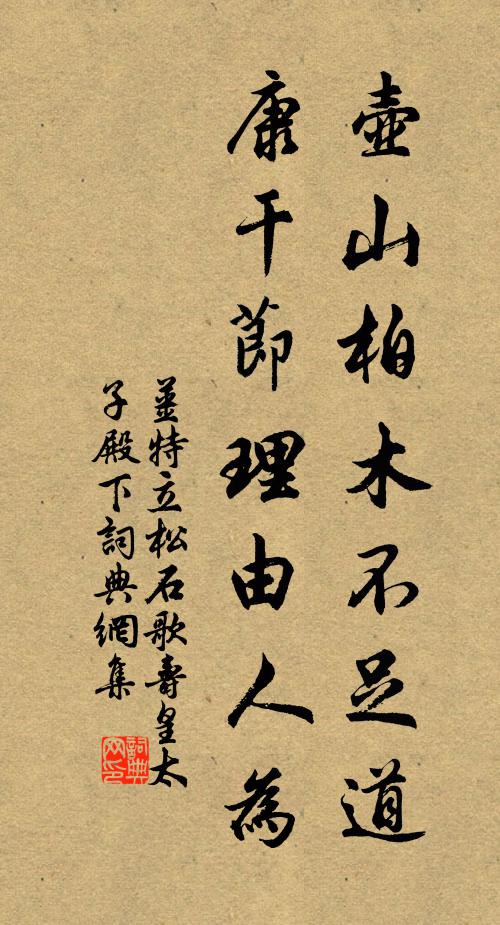 壺山柏木不足道
康干節理由人為
姜特立松石歌壽皇太
子殿下詞典網集
詞典
网印